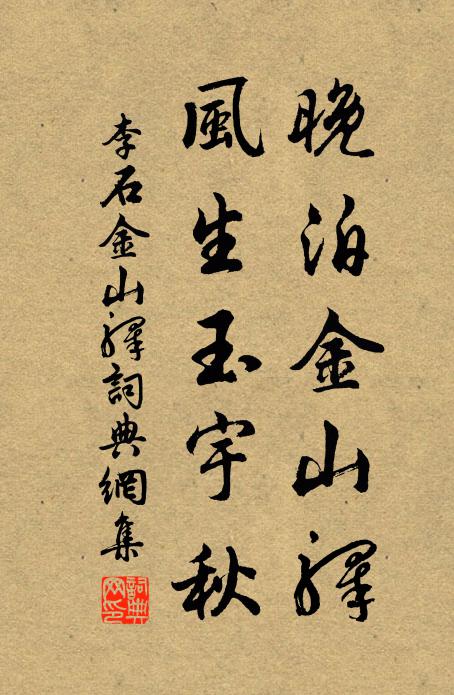 晚泊金山驛
風生玉宇秋
李石金山驛詞典網集
詞典
网印